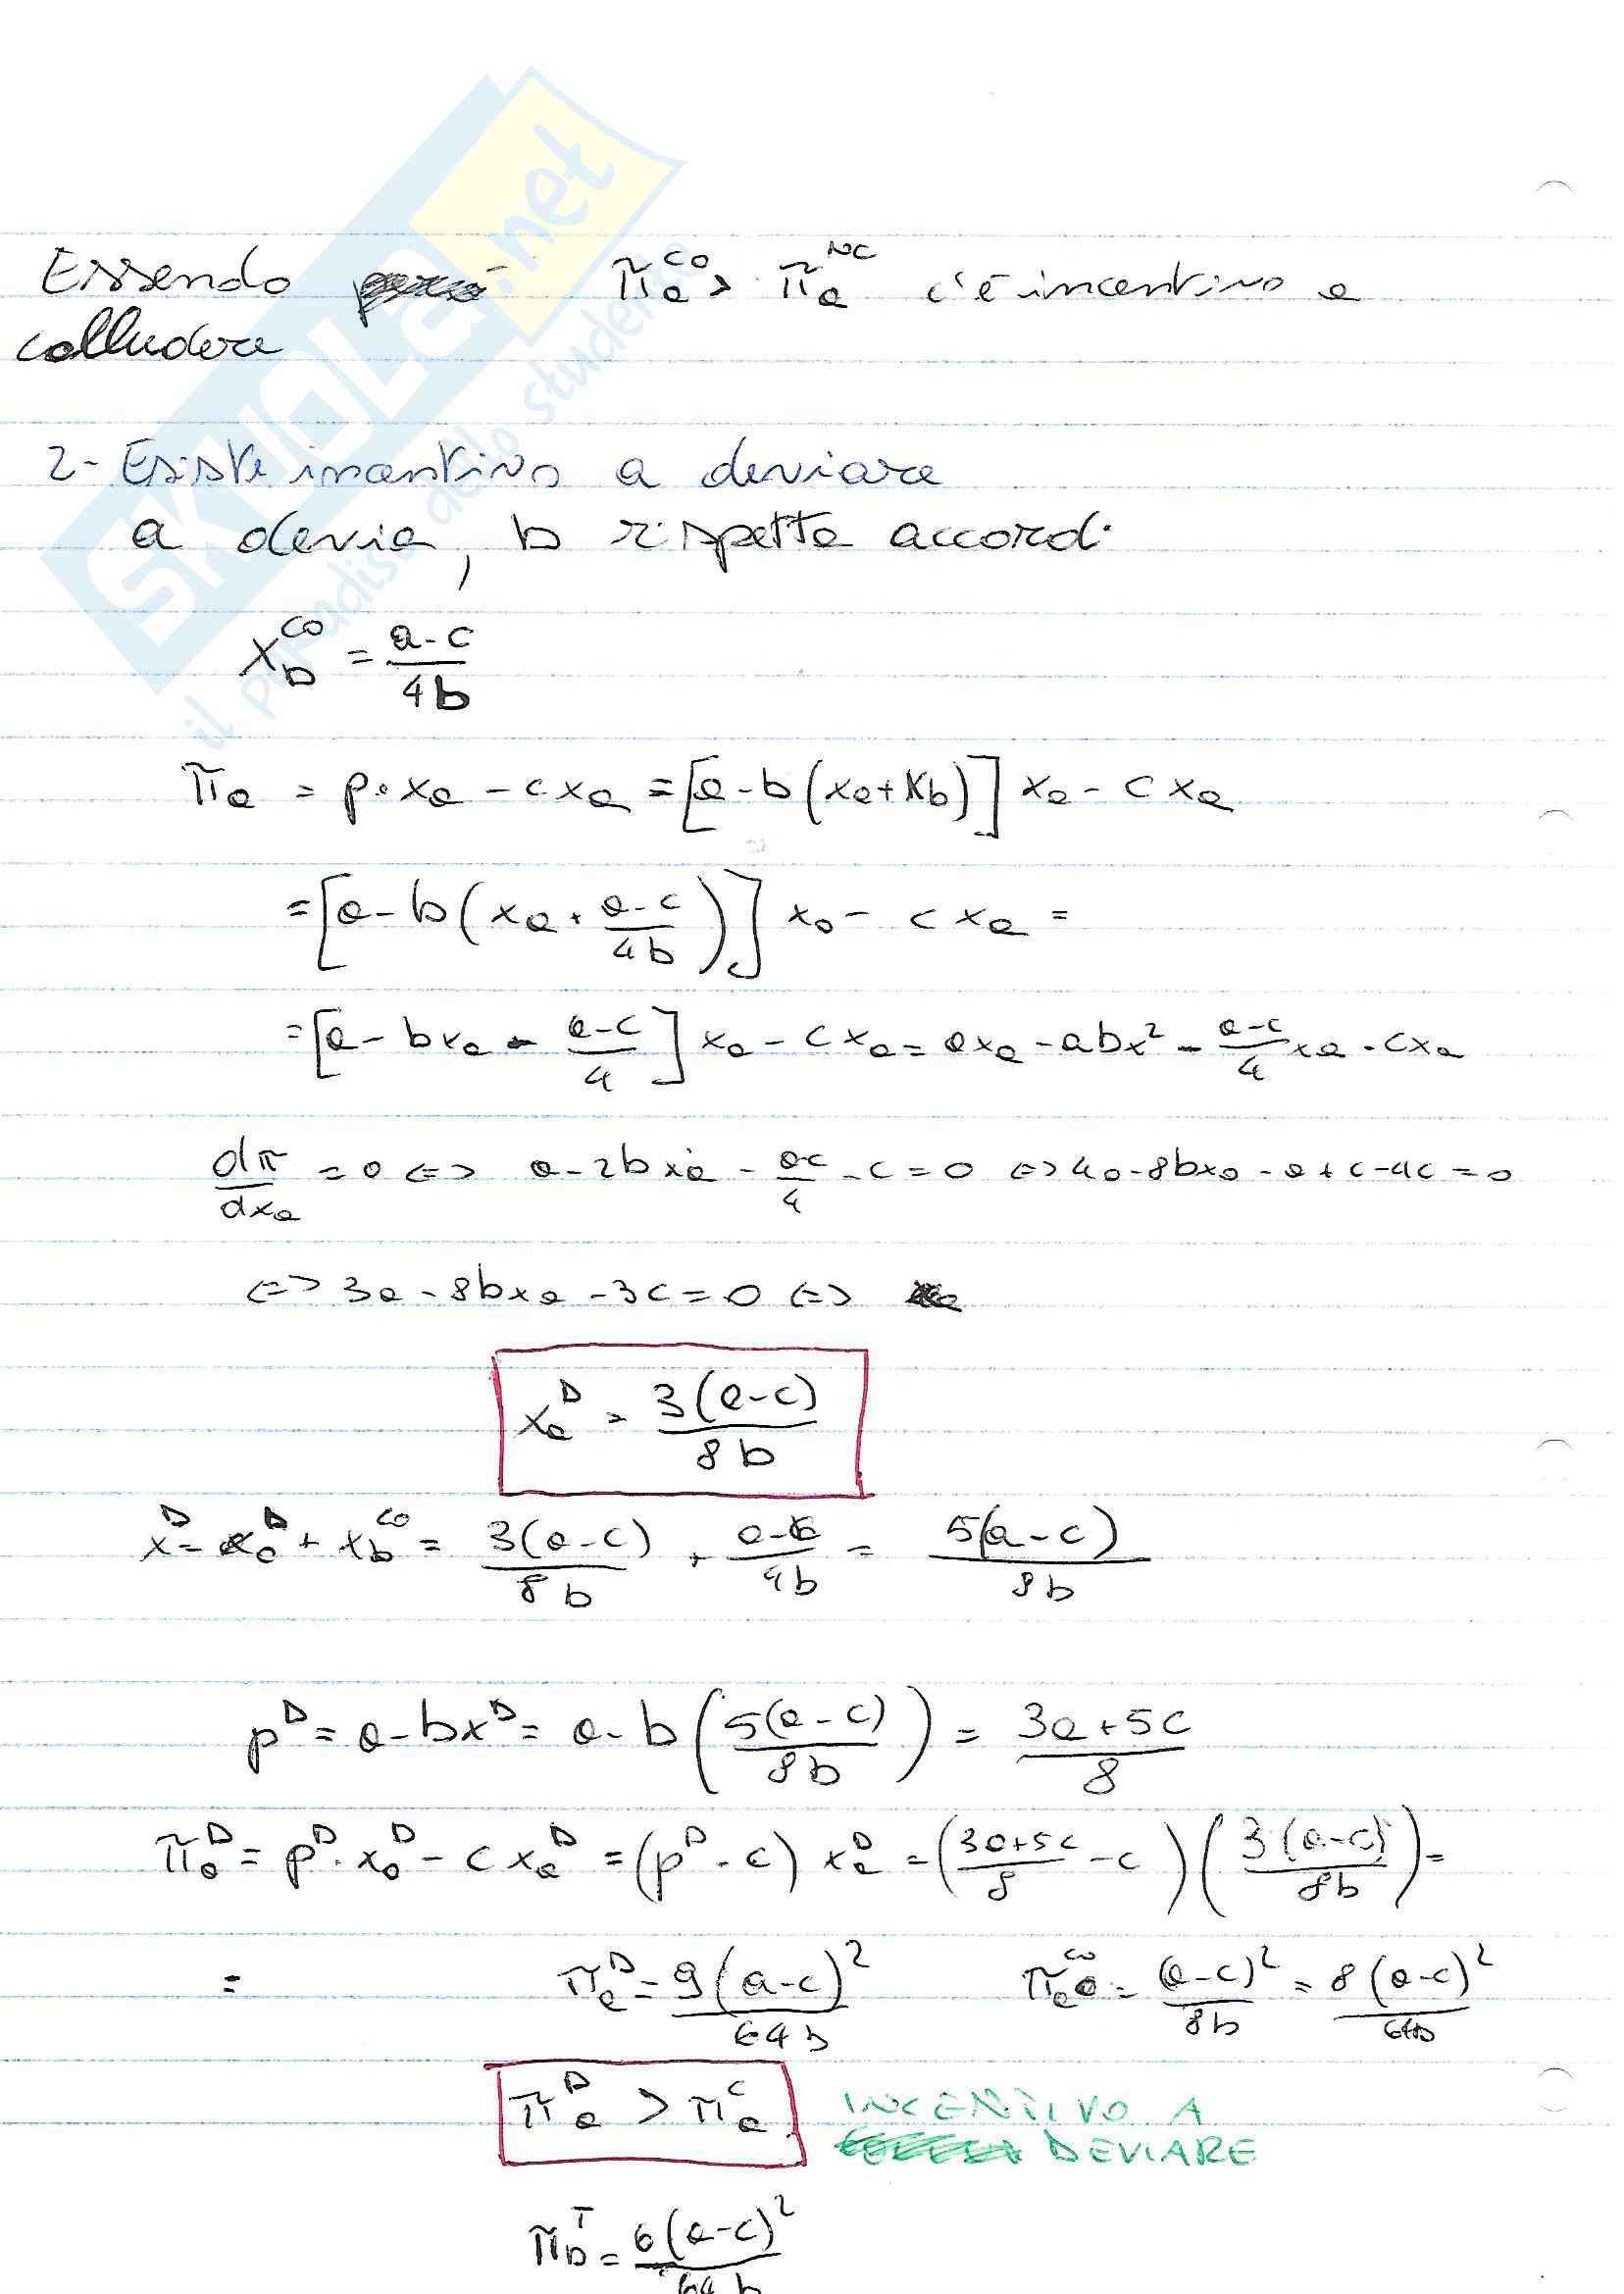 SKUOLA.net
il paradiso dello studente
Essendo π_a^CO > π_a^NC c'è incentivo a
colludere
2- Esiste incentivo a deviare
a devia, b rispetta accordi
x_b^CO = (a-c)/4b
π_a = p·x_a - cx_a = [a-b(x_a+x_b)] x_a - cx_a
= [a-b(x_a + (a-c)/4b)] x_a - cx_a =
= [a - bx_a - (a-c)/4] x_a - cx_a = ax_a - abx² - (a-c)/4 x_a - cx_a
dπ/dx_a = 0 <=> a - 2bx_a - (a-c)/4 - c = 0 <=> 4a - 8bx_a - a + c - 4c = 0
<=> 3a - 8bx_a - 3c = 0 <=>
x_a^D = 3(a-c)/8b
x^D = x_a^D + x_b^CO = 3(a-c)/8b + (a-c)/4b = 5(a-c)/8b
p^D = a - bx^D = a - b(5(a-c)/8b) = (3a+5c)/8
π_a^D = p^D·x_a^D - cx_a^D = (p^D - c) x_a^D = ((3a+5c)/8 - c)(3(a-c)/8b) =
= π_a^D = 9(a-c)²/64b π_a^CO = (a-c)²/8b = 8(a-c)²/64b
π_a^D > π_a^C INCENTIVO A
DEVIARE
π_b^T = 6(a-c)²/64b